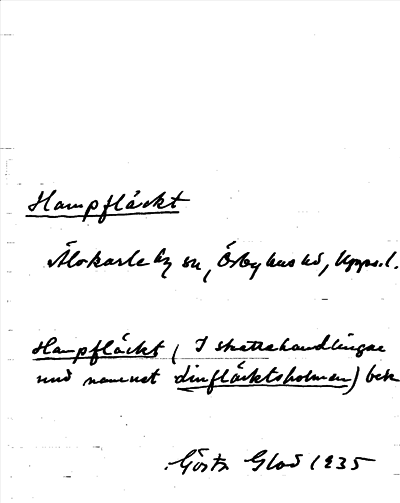 Hampfläckt
Älvkarleby sn, Örbyhus hd, Upps.l.
Hampfläckt (I skattehandlingar
med namnet Linfläcktsholmen) bek
Gösta Glad 1935